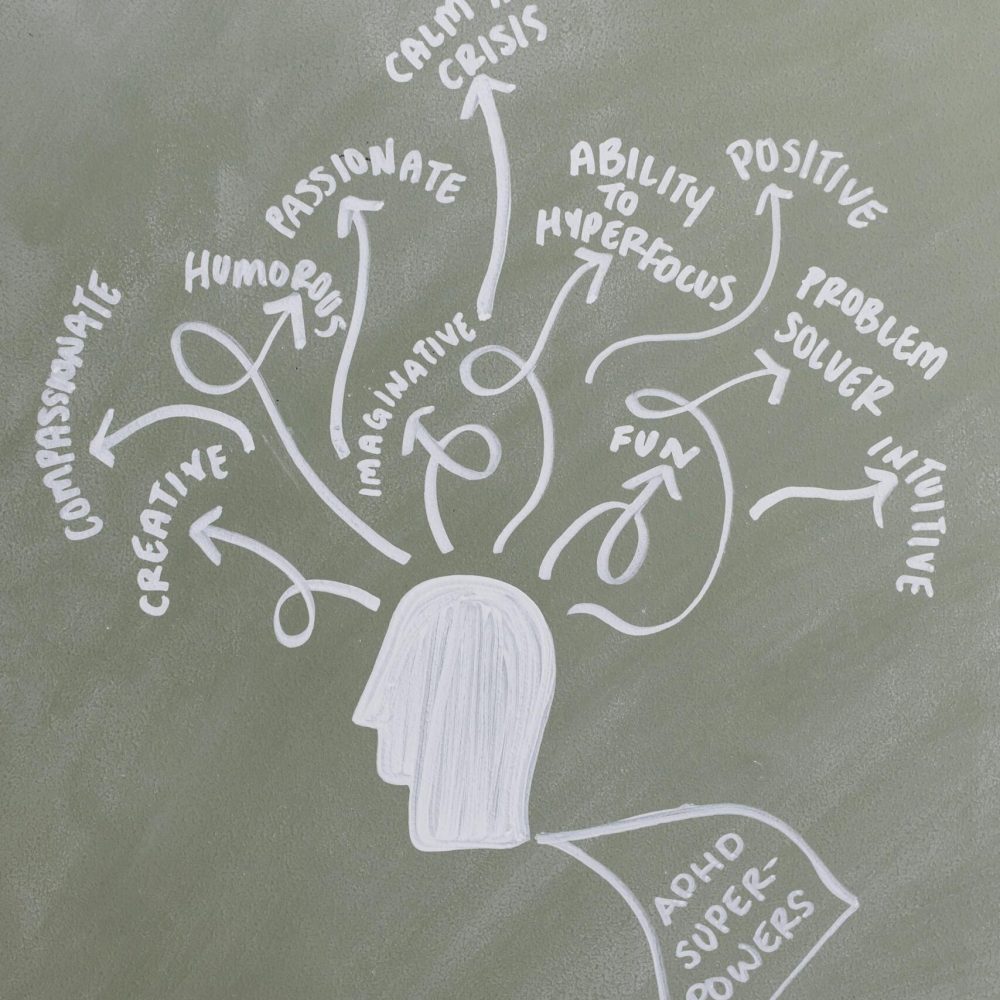 CALM
CRISIS
PASSIONATE
ABILITY
TO
HYPERFOCUS
POSITIVE
HUMOROUS
PROBLEM
SOLVER
COMPASSIONATE
IMAGINATIVE
FUN
INTUITIVE
CREATIVE
ADHD
SUPER-
POWERS